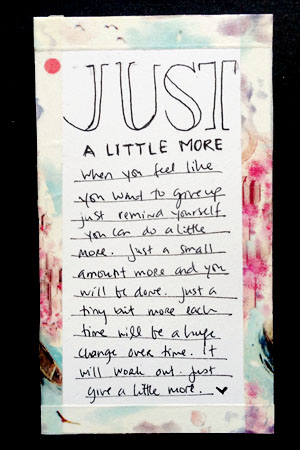 JUST
A LITTLE MORE
when you feel like
you want to give up
just remind yourself
you can do a little
more. Just a small
amount more and you
will be done. Just a
tiny bit more each
time will be a huge
change over time. It
will work out. Just
give a little more. ♥